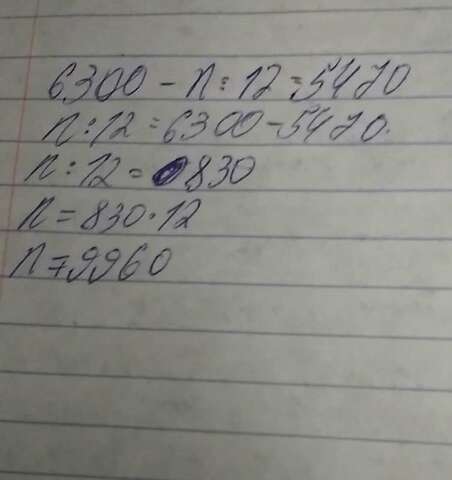 6300 - n : 12 = 5470
n : 12 = 6300 - 5470.
n : 12 = 830
n = 830 · 12
n = 9960